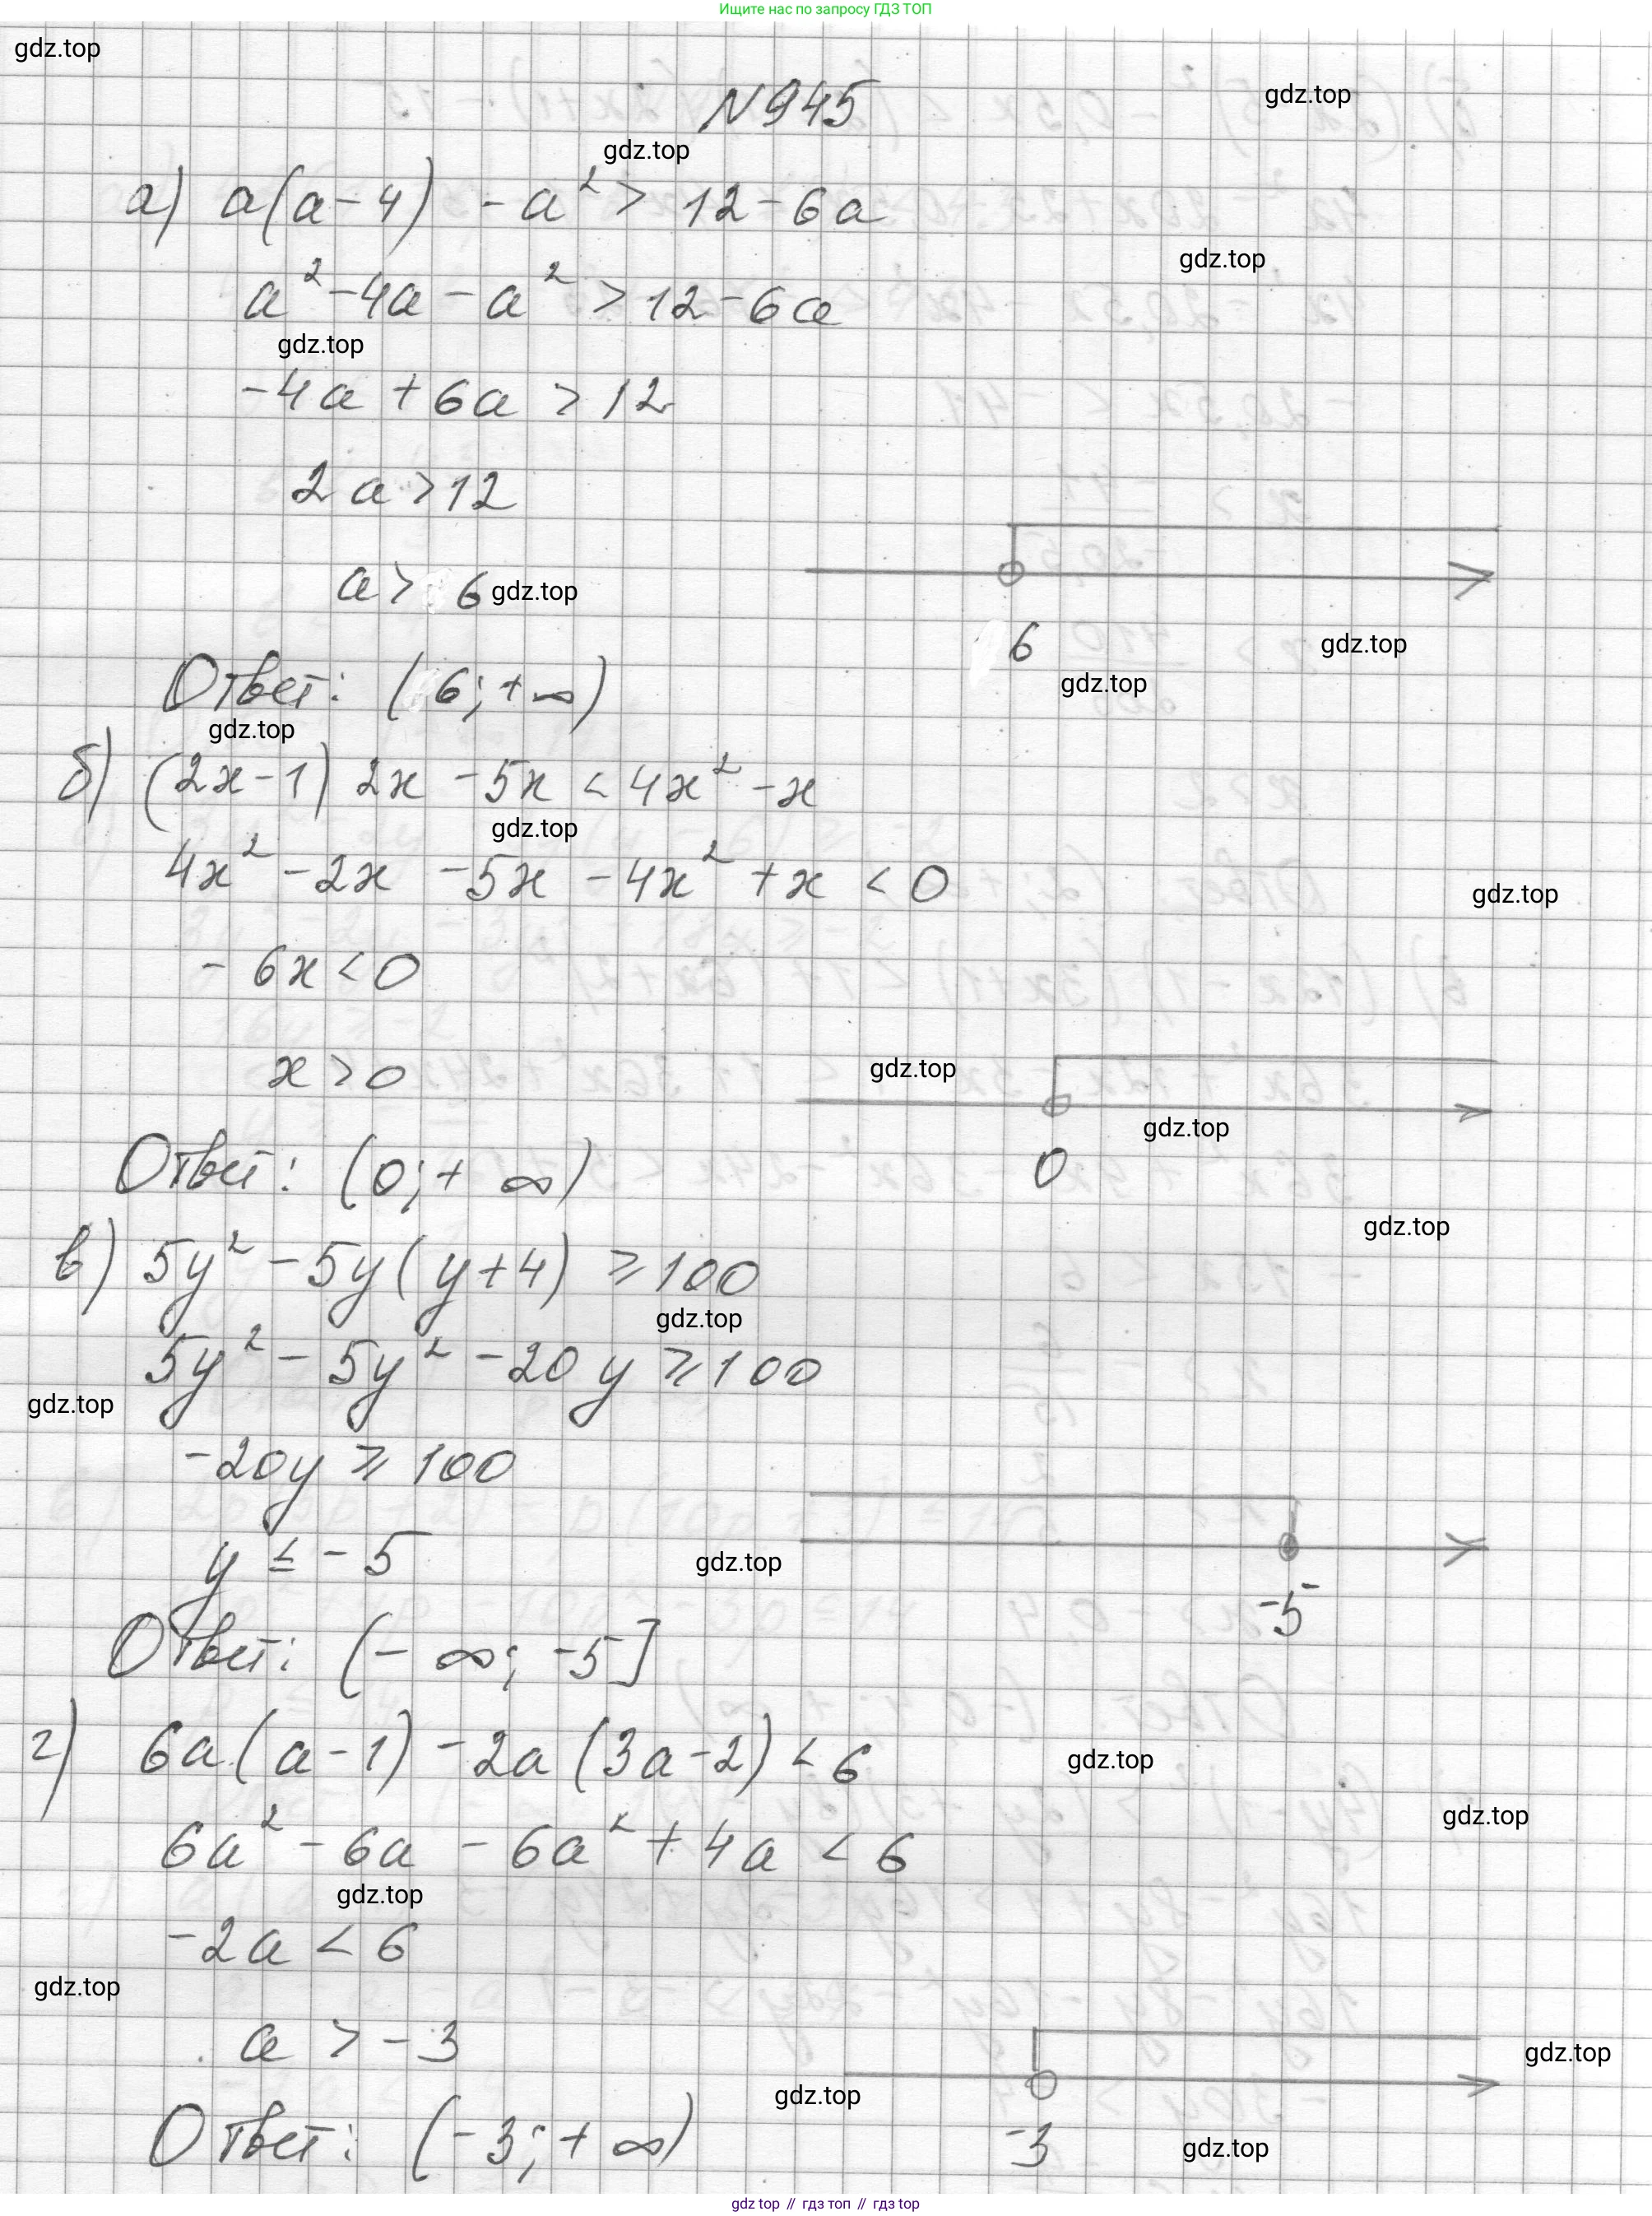 Ищите нас по запросу ГДЗ ТОП
gdz.top
N945
gdz.top
gdz.top
а) a(a-4) -a²> 12-6a
gdz.top
a²-4a-a²>12-6a
gdz.top
-4a+6a>12
2a>12
a>6
gdz.top
6
gdz.top
gdz.top
Ответ: (6;+∞)
gdz.top
б) (2x-1)2x-5x<4x²-x
gdz.top
4x²-2x-5x-4x²+x<0
gdz.top
-6x<0
x>0
gdz.top
gdz.top
0
Ответ: (0;+∞)
gdz.top
в) 5y²-5y(y+4)≥100
gdz.top
5y²-5y²-20y≥100
gdz.top
-20y≥100
y≤-5
gdz.top
-5
Ответ: (-∞;-5]
г) 6a(a-1)-2a(3a-2)<6
gdz.top
gdz.top
6a²-6a-6a²+4a<6
gdz.top
-2a<6
gdz.top
a>-3
gdz.top
gdz.top
-3
gdz.top
Ответ: (-3;+∞)
gdz top // гдз топ // гдз top